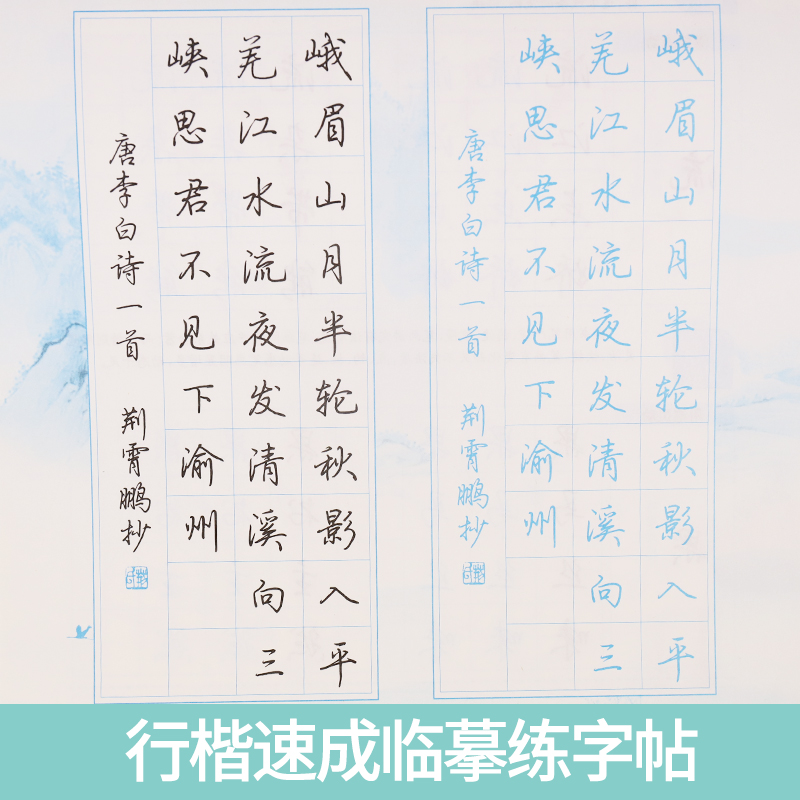 峨眉山月半轮秋影入平
羌江水流夜发清溪向三
峡思君不见下渝州
唐李白诗一首 荆霄鹏抄
峨眉山月半轮秋影入平
羌江水流夜发清溪向三
峡思君不见下渝州
唐李白诗一首 荆霄鹏抄
行楷速成临摹练字帖